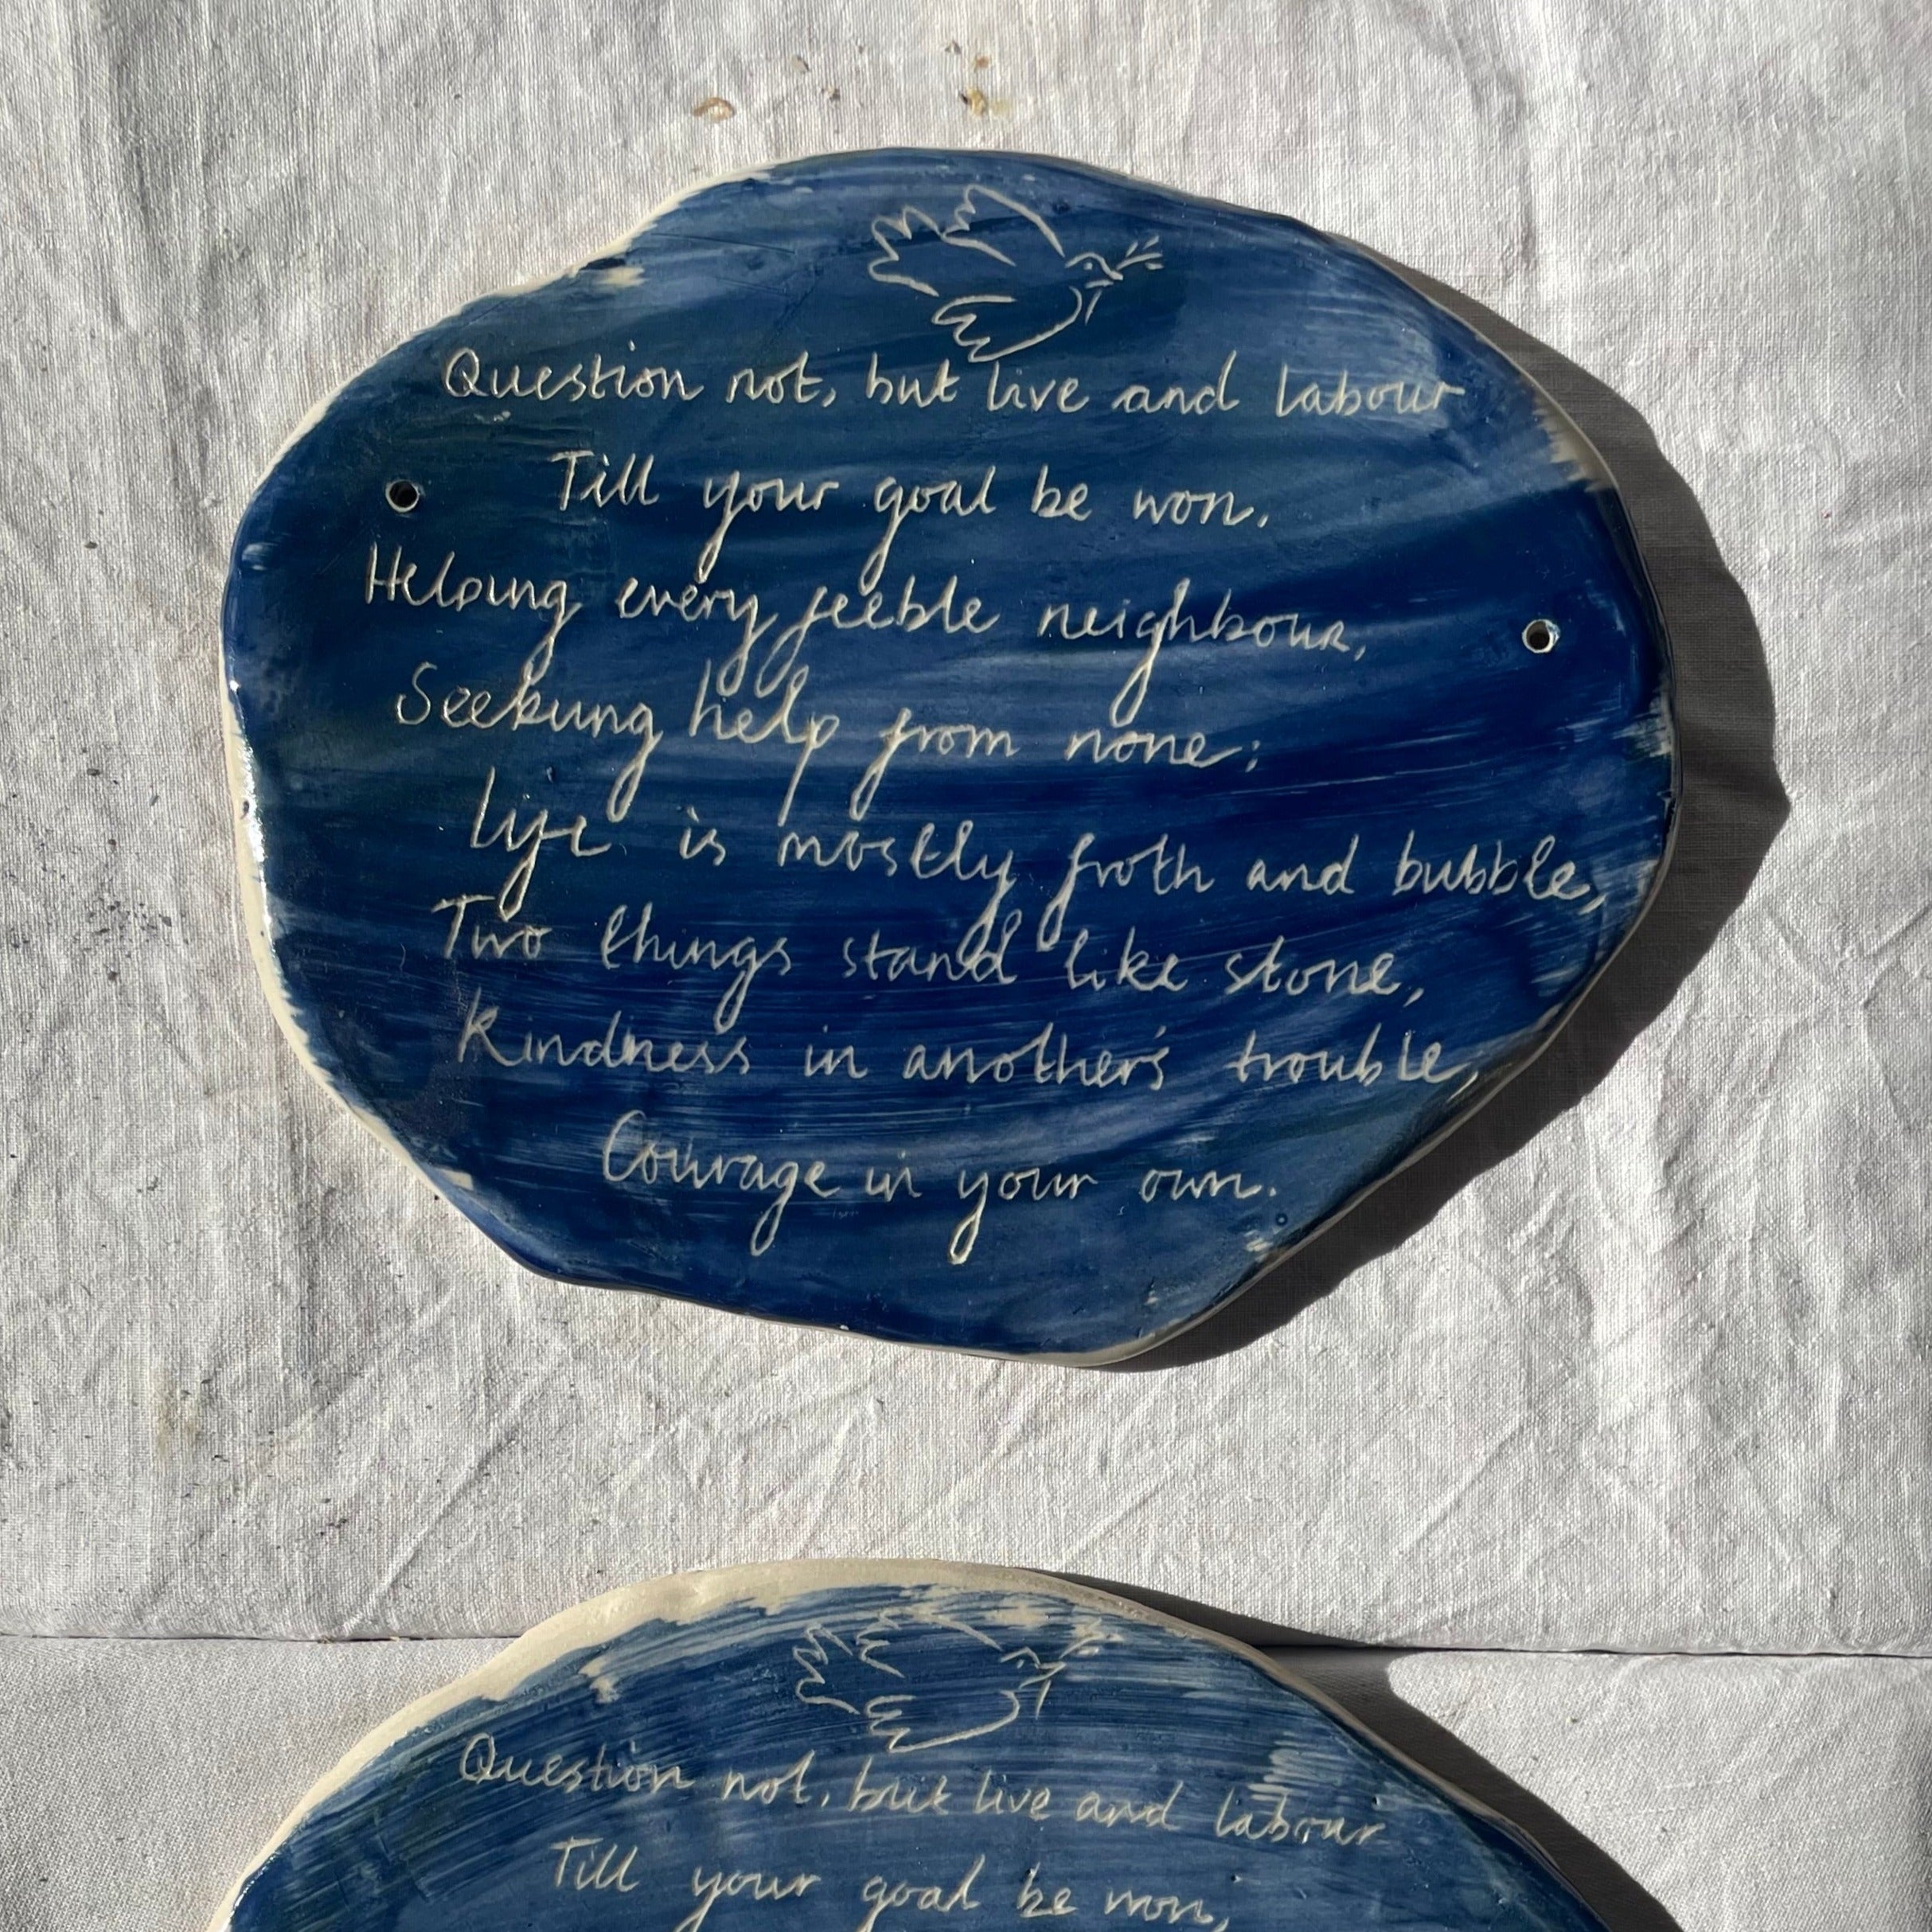 Question not, but live and labour
Till your goal be won.
Helping every feeble neighbour,
Seeking help from none;
Life is mostly froth and bubble,
Two things stand like stone,
Kindness in another's trouble,
Courage in your own.
Question not, but live and labour
Till your goal be won,